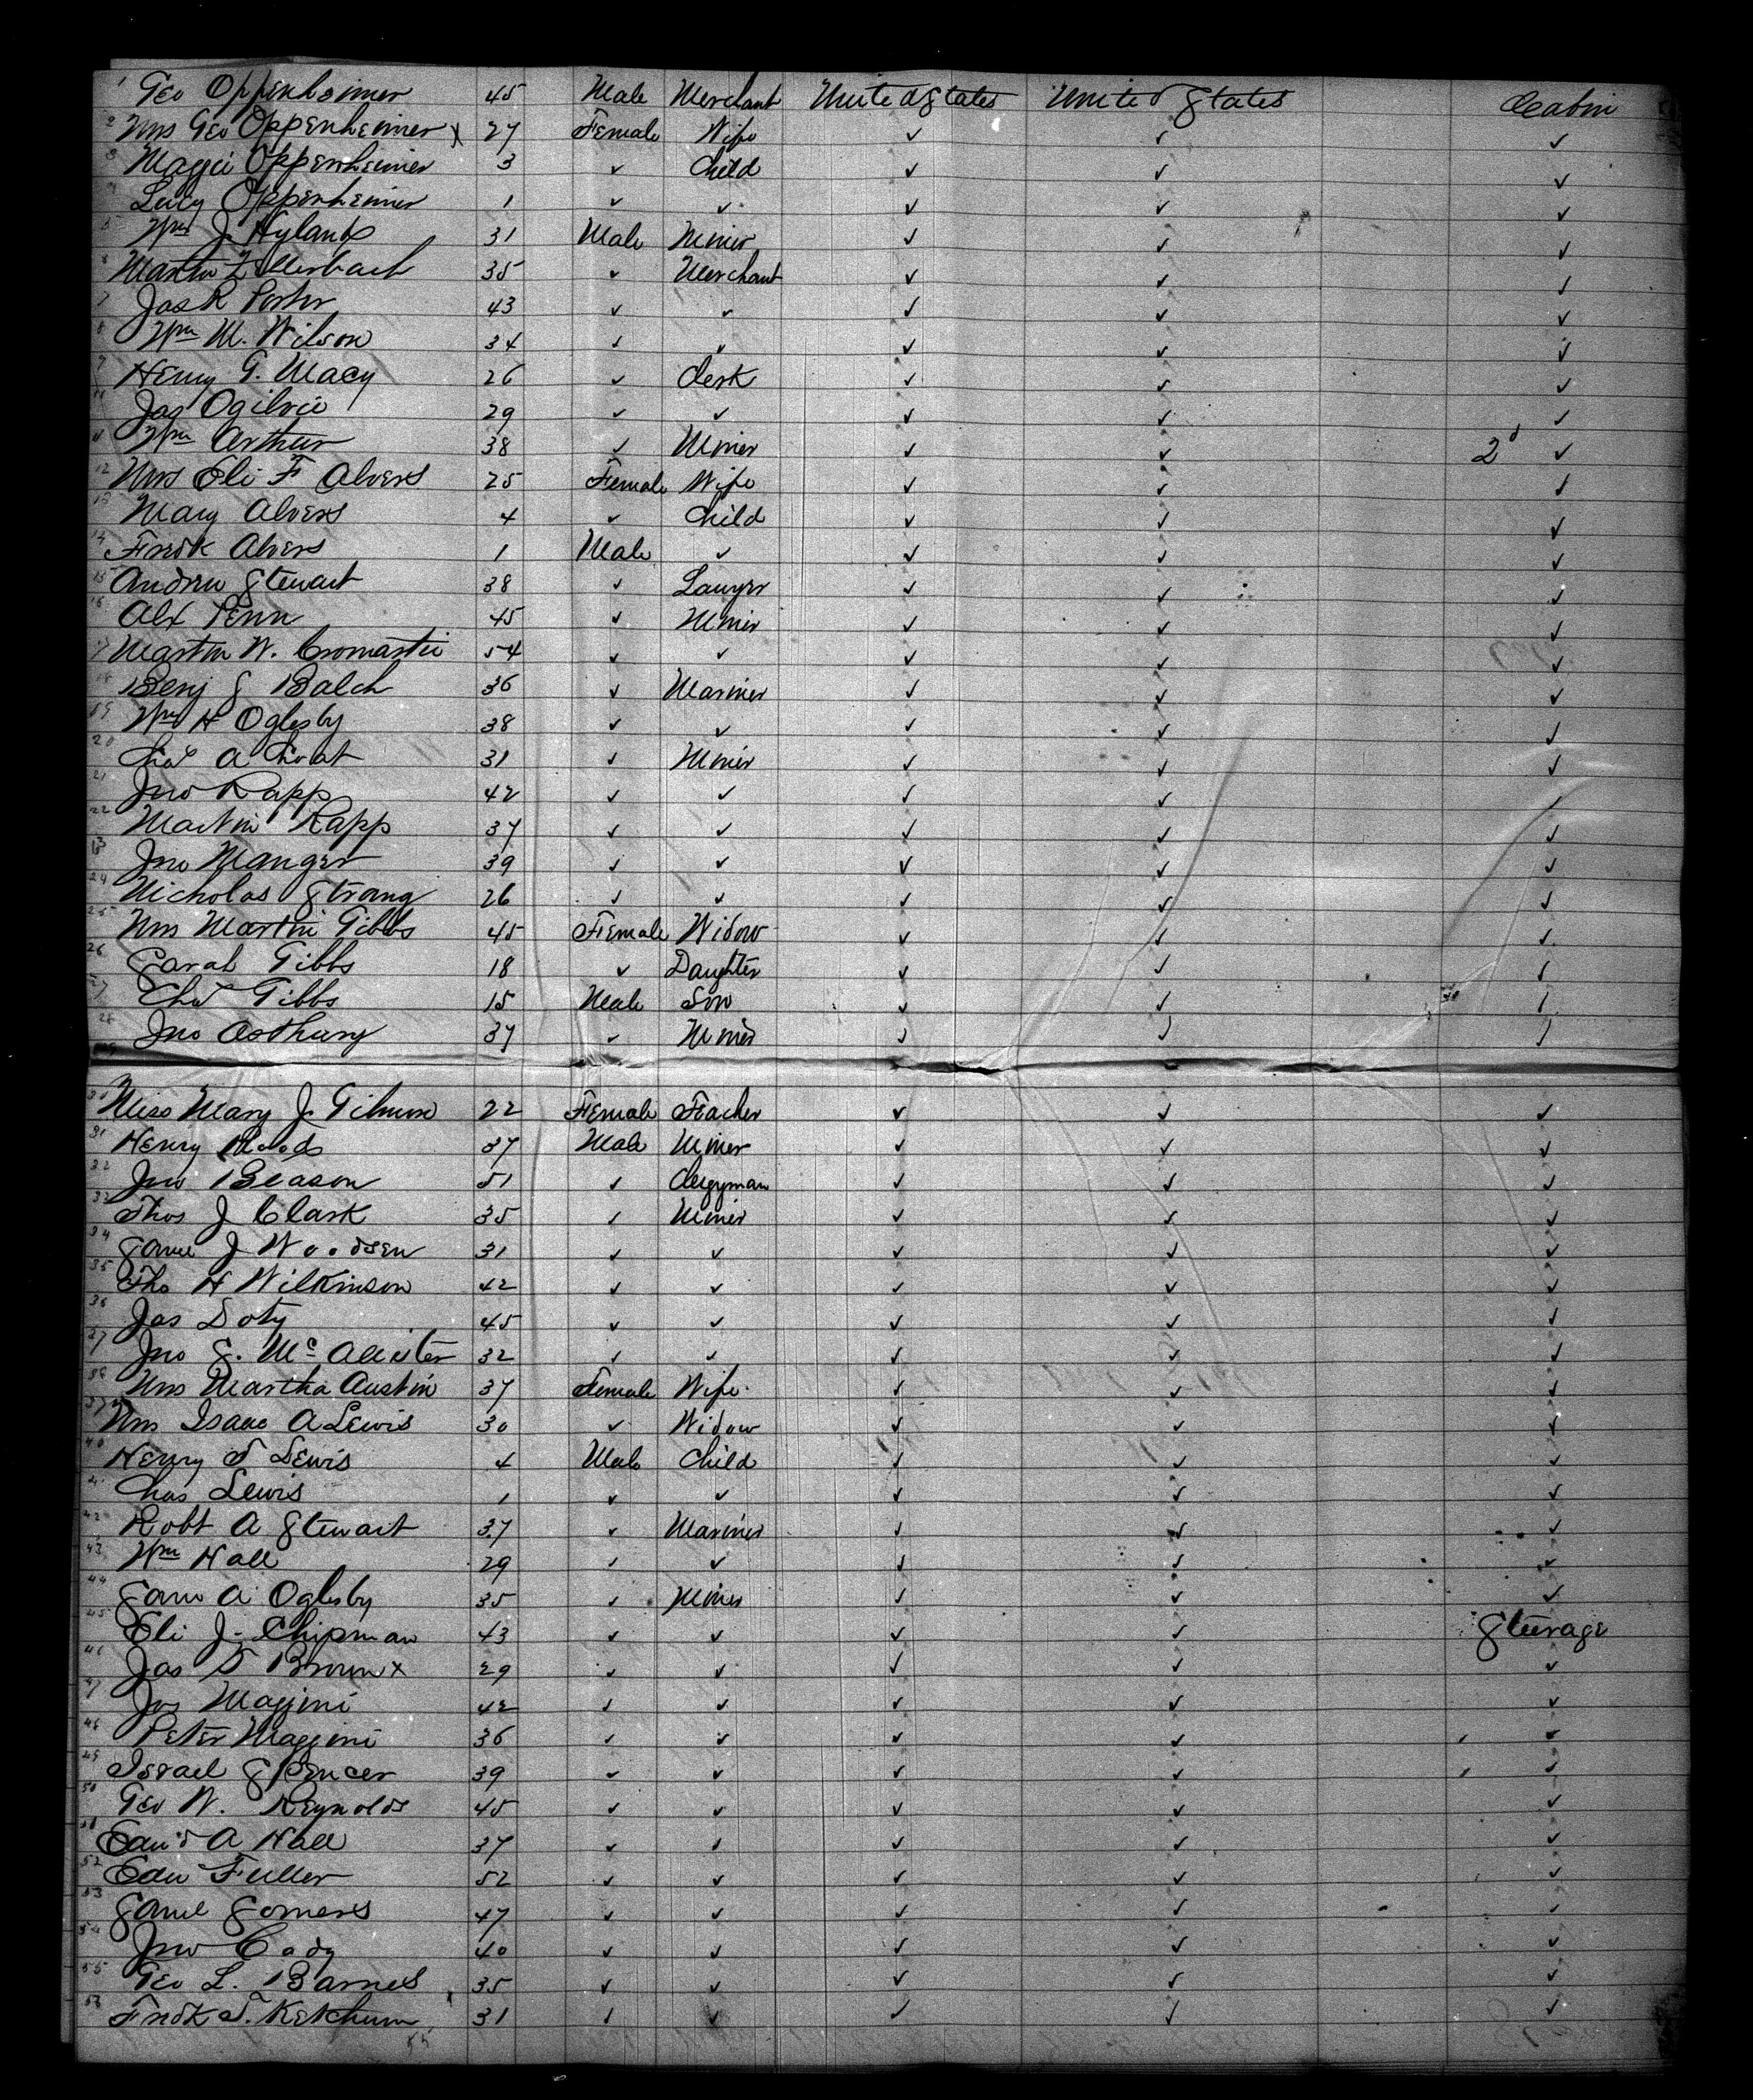 1 Geo Oppenheimer 45 Male Merchant United States United States Cabin
2 Mrs Geo Oppenheimer x 27 Female Wife ✓ ✓ ✓
3 Maggie Oppenheimer 3 ✓ Child ✓ ✓ ✓
4 Lucy Oppenheimer 1 ✓ ✓ ✓ ✓ ✓
5 Wm J. 31 Male Miner ✓ ✓ ✓
6 Martin 35 ✓ Merchant ✓ ✓ ✓
7 Jas R Porter 43 ✓ ✓ ✓ ✓ ✓
8 Wm M. Wilson 34 ✓ ✓ ✓ ✓ ✓
9 Henry G. Macy 26 ✓ Clerk ✓ ✓ ✓
Jas Ogilvie 29 ✓ ✓ ✓ ✓ ✓
11 Wm Arthur 38 ✓ Miner ✓ ✓ 2d ✓
12 Mrs Eli F Alvers 25 Female Wife ✓ ✓ ✓
13 Mary Alvers 4 ✓ Child ✓ ✓ ✓
14 Fredk Alvers 1 Male ✓ ✓ ✓ ✓
15 Andrew Stewart 38 ✓ Lawyer ✓ ✓ ✓
16 Alx Penn 45 ✓ Miner ✓ ✓ ✓
17 Martin W. Cromartie 54 ✓ ✓ ✓ ✓ ✓
18 Benj S Balch 36 ✓ Mariner ✓ ✓ ✓
19 Wm H Oglesby 38 ✓ ✓ ✓ ✓ ✓
20 Chas A Choat 31 ✓ Miner ✓ ✓ ✓
21 Jno Rapp 42 ✓ ✓ ✓ ✓ ✓
22 Martin Rapp 37 ✓ ✓ ✓ ✓ ✓
23 Jno Manger 39 ✓ ✓ ✓ ✓ ✓
24 Nicholas Strang 26 ✓ ✓ ✓ ✓ ✓
25 Mrs Martin Gibbs 45 Female Widow ✓ ✓ ✓
26 Sarah Gibbs 18 ✓ Daughter ✓ ✓ ✓
27 Chas Gibbs 15 Male Son ✓ ✓ ✓
28 Jno 37 ✓ Miner ✓ ✓ ✓
30 Miss Mary J. 22 Female Teacher ✓ ✓ ✓
31 Henry 37 Male Miner ✓ ✓ ✓
32 Jno Beason 51 ✓ Clergyman ✓ ✓ ✓
33 Thos J Clark 35 ✓ Miner ✓ ✓ ✓
34 Saml J Woodsen 31 ✓ ✓ ✓ ✓ ✓
35 Tho H Wilkinson 42 ✓ ✓ ✓ ✓ ✓
36 Jas Doty 45 ✓ ✓ ✓ ✓ ✓
37 Jno S. Mc Alister 32 ✓ ✓ ✓ ✓ ✓
38 Mrs Martha Austin 37 Female Wife ✓ ✓ ✓
39 Mrs Isaac A Lewis 30 ✓ Widow ✓ ✓ ✓
40 Henry T Lewis 4 Male Child ✓ ✓ ✓
41 Chas Lewis 1 ✓ ✓ ✓ ✓ ✓
42 Robt A Stewart 37 ✓ Mariner ✓ ✓ ✓
43 Wm Hall 29 ✓ ✓ ✓ ✓ ✓
44 Sam A Oglesby 35 ✓ Miner ✓ ✓ ✓
45 Eli J. Chipman 43 ✓ ✓ ✓ ✓ Steerage
46 Jas T Brown x 29 ✓ ✓ ✓ ✓ ✓
47 Jos Maggini 42 ✓ ✓ ✓ ✓ ✓
48 Peter Maggini 36 ✓ ✓ ✓ ✓ ✓
49 Israel Spencer 39 ✓ ✓ ✓ ✓ ✓
50 Geo W. Reynolds 45 ✓ ✓ ✓ ✓ ✓
51 Edwd A Hall 37 ✓ ✓ ✓ ✓ ✓
52 Edw Fuller 52 ✓ ✓ ✓ ✓ ✓
53 Saml Somers 47 ✓ ✓ ✓ ✓ ✓
54 Jno Cady 40 ✓ ✓ ✓ ✓ ✓
55 Geo L. Barnes 35 ✓ ✓ ✓ ✓ ✓
Fredk T. Ketchum 31 ✓ ✓ ✓ ✓ ✓